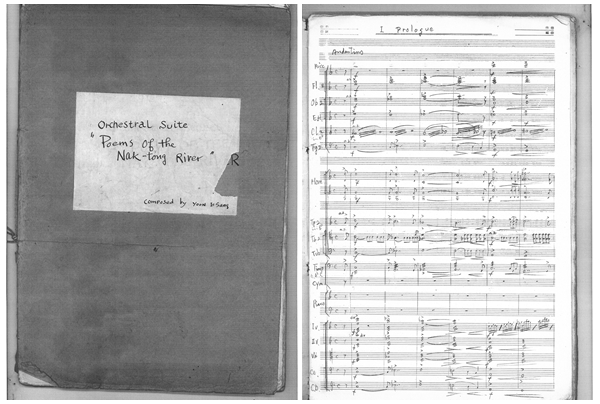 Orchestral Suite
"Poems Of the
Nak-tong River"
R
Composed by Youn I-Sang
I Prologue
Andantino
Picc
Fl.
Ob
E.H
Cl.
Fg.
Horn
Tp.
Tb.
Tuba
Timp
Cym
Piano
Iv
IIv
Va
Cb